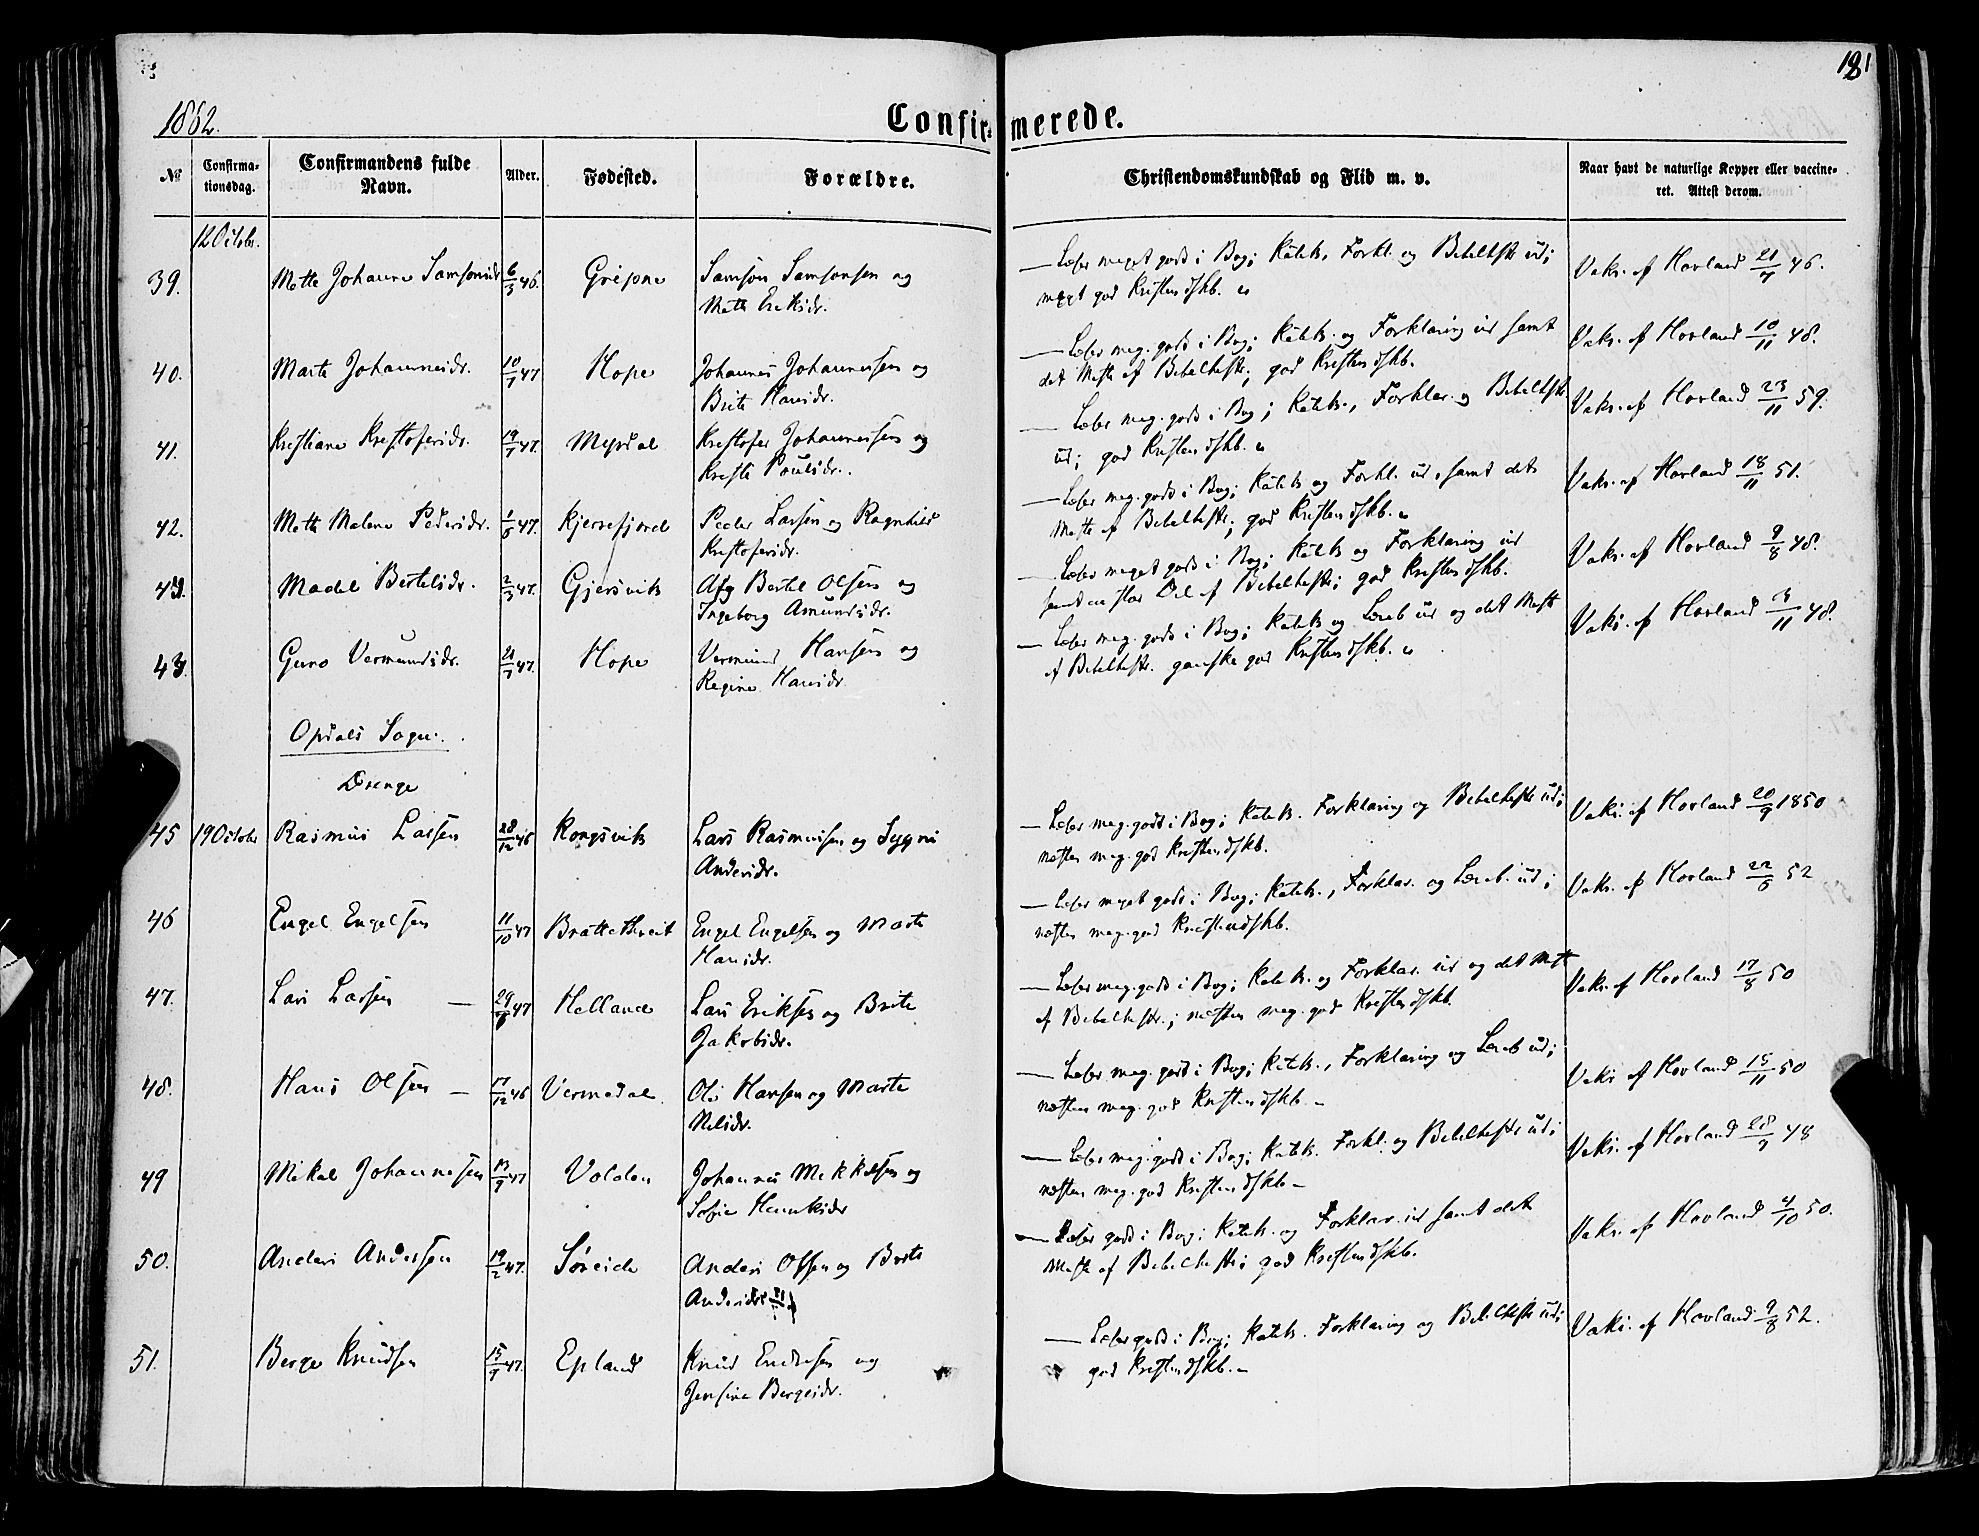 181
1862.
Confirmerede.
№
Confirma-
tionsdag.
Confirmandens fulde
Navn.
Alder.
Fødested.
Forældre.
Christendomskundskab og Flid m. v.
Naar havt de naturlige Kopper eller vaccine-
ret. Attest derom.
12 Octobr.
39. Mette Johanne Samsonsdr. 6/3 46. Gripne Samson Samsonsen og
Mette Eriksdr.
— Læser meget godt i Bog; Katek. Forkl. og Bibelhist. ud;
meget god Kristendskb.
Vaks. af Hovland 21/7 46.
40. Marte Johannesdr. 10/7 47 Hope Johannes Johannessen og
Brite Hansdr.
— Læser meg. godt i Bog; Katek. og Forklaring ud samt
det Meste af Bibelhist.; god Kristendskb.
Vaks. af Hovland 10/11 48.
41. Kristiane Kristofersdr. 19/7 47. Myrdal Kristofer Johannessen og
Kriste Poulsdr.
— Læser meg. godt i Bog; Katek., Forklar. og Bibelhist.
ud; god Kristendskb.
Vaks. af Hovland 23/11 59.
42. Mette Malene Pedersdr. 1/6 47. Kjerrefjord Peder Larsen og Ragnhild
Kristofersdr.
— Læser meg. godt i Bog; Katek og Forkl. ud, samt det
Meste af Bibelhist.; god Kristendskb.
Vaks. af Hovland 18/11 51.
43. Madel Bertelsdr. 2/3 47. Gjersvik Afg Bertel Olsen og
Ingeborg Amundsdr.
— Læser meget godt i Bog; Katek og Forklaring ud
samt en stor Del af Bibelhist; god Kristendskb.
Vaks. af Hovland 9/8 48.
43. Guro Vermundsdr. 21/7 47. Hope Vermund Hansen og
Regine Hansdr.
— Læser meg. godt i Bog; Katek og Læreb ud og det Meste
af Bibelhist. ganske god Kristendskb.
Vaks. af Hovland 3/11 48.
Opdals Sogn.
Drenge
45 19 Octobr Rasmus Larsen 28/12 46 Kongsvik Lars Rasmussen og Sygni
Andersdr.
— Læser meg. godt i Bog; Katek. Forklaring og Bibelhist ud;
næsten meg. god Kristendskb.
Vaks. af Hovland 20/9 1850
46 Engel Engelsen 11/10 47 Brattethveit Engel Engelsen og Marte
Hansdr.
— Læser meget godt i Bog; Katek., Forklar. og Læreb. ud;
næsten meg. god Kristendskb.
Vaks. af Hovland 22/6 52
47. Lars Larsen — 29/6 47 Helland Lars Eriksen og Brite
Jakobsdr.
— Læser meg. godt i Bog; Katek. og Forklar. ud og det Mest
af Bibelhistr.; næsten meg. god Kristendskb.
Vaks. af Hovland 17/8 50
48. Hans Olsen — 17/12 46 Vermedal. Ols Hansen og Marte
Nelsdr.
— Læser meg. godt i Bog; Katek., Forklaring og Læreb ud;
næsten meg. god Kristendskb. –
Vaks af Hovland 15/11 50
49 Mikal Johannessen 13/9 47 Volden Johannes Mikkelsen og
Sofie Henriksdr
— Læser meg. godt i Bog; Katek. Forkl. og Bibelhist ud;
næsten meg. god Kristendskb –
Vaks. af Hovland 28/9 48
50. Anders Andersen 19/2 47. Søreide Anders Olsen og Brite
Andersdr
— Læser godt i Bog; Katek. og Forklar. ud samt det
Meste af Bibelhist; god Kristendskb.
Vaks. af Hovland 4/10 50.
51. Berge Knudsen 15/9 47. Epland Knud Endresen og
Jensine Bergesdr.
— Læser godt i Bog; Katek. Forklaring og Bibelhist ud;
god Kristendskb. –
Vaks. af Hovland 9/8 52.